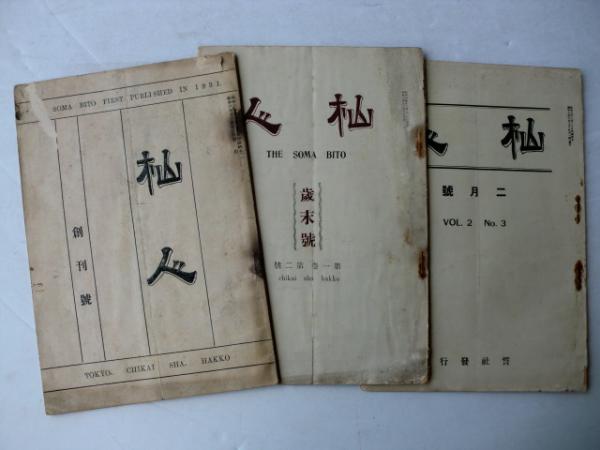 SOMA BITO FIRST PUBLISHED IN 1931.
杣人
創刊號
TOKYO. CHIKAI SHA. HAKKO
杣人
THE SOMA BITO
歲末號
第一卷第二號
chikai sha hakko
杣人
二月號
VOL. 2 No. 3
誓社發行